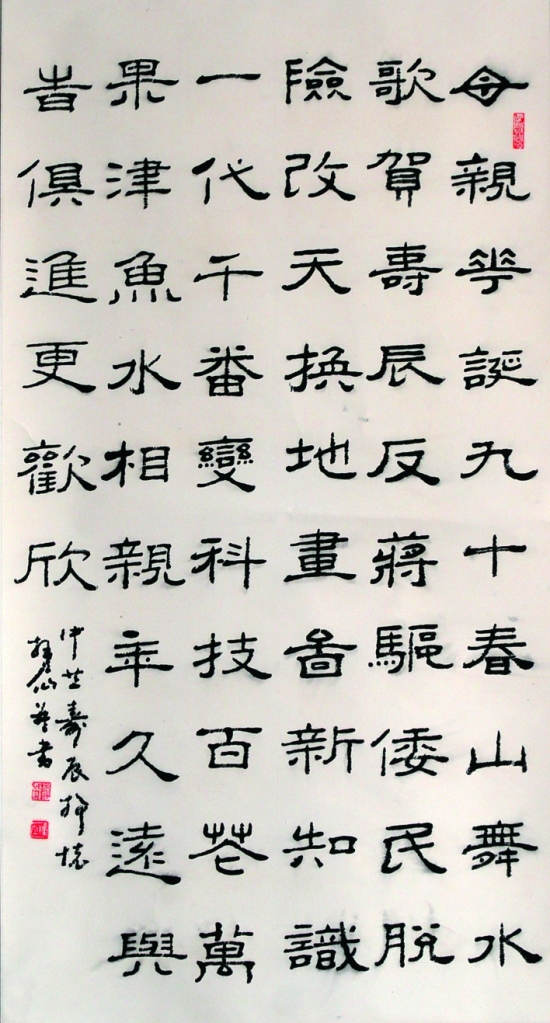 母親華誕九十春山舞水
歌賀壽辰反蔣驅倭民脫
險改天換地畫啚新知識
一代千番變科技百花萬
果津魚水相親年久遠與
旹俱進更歡欣
中共壽辰抒懷
書